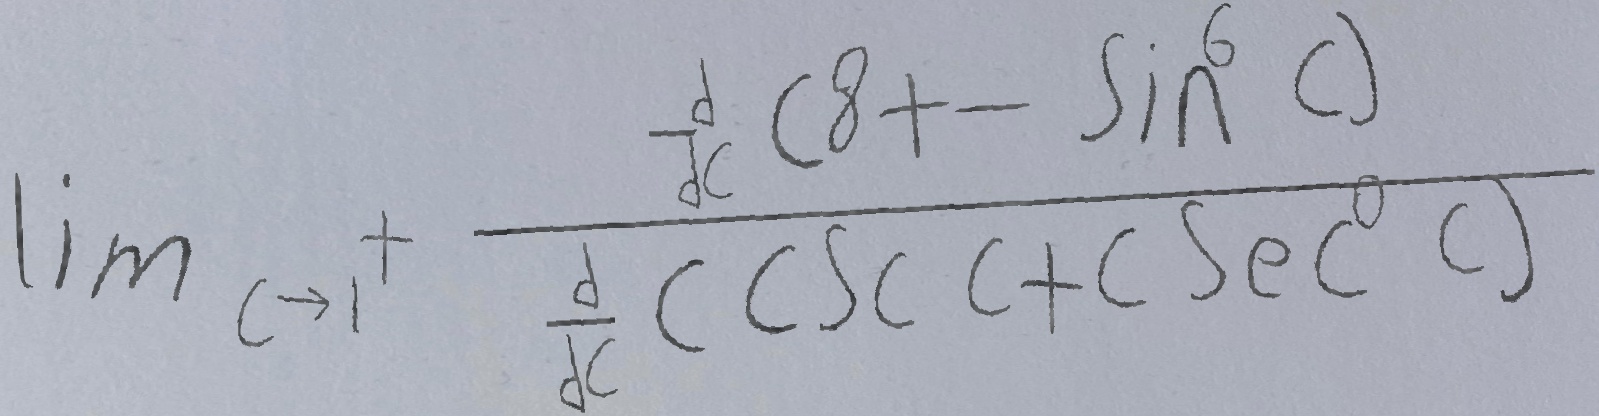 \lim_{c \to 1^+} \frac{\frac{d}{dc}(8 + - \sin^6 c)}{\frac{d}{dc}(\csc c + c \sec^0 c)}